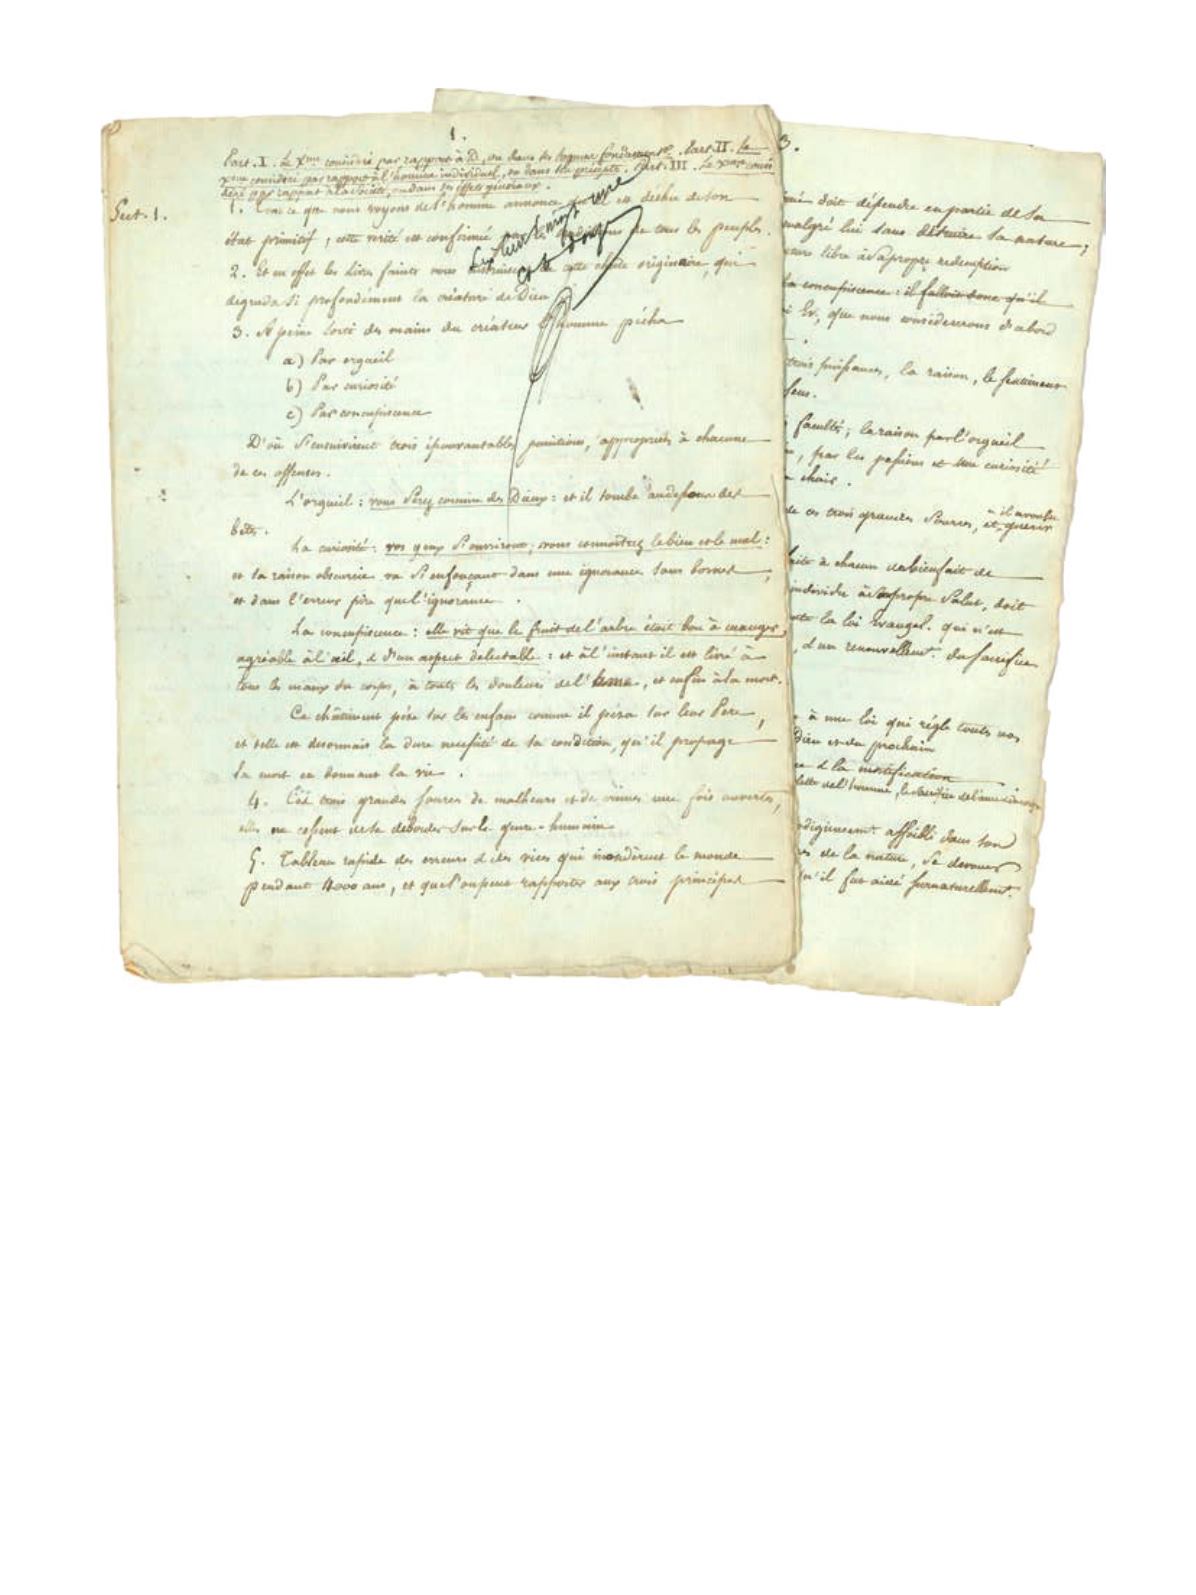 1.
Part. I. Le Xme considéré par rapport à D, ou dans ses dogmes fondament. Part. II. Le
Xme considéré par rapport à l'homme individuel, ou dans ses préceptes. Part. III. Le Xme consi
déré par rapport à la Société, ou dans ses effets généraux.
Sect. 1.
1. Tout ce que nous voyons de l'homme annonce qu'il est déchu de son
état primitif; cette vérité est confirmée par les de tous les peuples.
2. Et en effet les Livres saints nous instruisent de cette chute originaire, qui
degrada si profondément la créature de Dieu
3. A peine sorti des mains du créateur l'homme pécha
a) Par orgueil
b) Par curiosité
c) Par concupiscence
D'où s'ensuivirent trois épouvantables punitions, appropriées à chacune
de ces offenses.
L'orgueil : vous serez comme des Dieux : et il tombe audessous des
bêtes.
La curiosité : vos yeux s'ouvriront, vous connoîtrez le bien et le mal :
et sa raison obscurcie va s'enfonçant dans une ignorance sans bornes,
et dans l'erreur pire que l'ignorance.
La concupiscence : elle vit que le fruit de l'arbre était bon à manger,
agréable à l'œil, & d'un aspect delectable : et à l'instant il est livré à
tous les maux du corps, à touts les douleurs de l'ame, et enfin à la mort.
Ce châtiment pèse sur les enfans comme il pésa sur leur Pere,
et telle est desormais la dure necessité de sa condition, qu'il propage
la mort en donnant la vie.
4. Ces trois grandes sources de malheurs et de crimes une fois ouvertes,
elles ne cessent de se déborder sur le genre-humain
5. Tableau rapide des erreurs & des vices qui inondèrent le monde
pendant 4000 ans, et que l'on peut rapporter aux trois principes
3.
doit dépendre en partie de sa
malgré lui sans détruire sa nature;
libre à sa propre redemption
la concupiscence : il falloit donc qu'il
que nous considérerons d'abord
trois puissances, la raison, le sentiment
sens.
facultés; la raison par l'orgueil
par les passions et une curiosité
chair.
de ces trois grandes sources, et guerir
faite à chacun du bienfait de
individu à son propre salut, doit
la loi Evangel. qui n'est
d'un renouvellemt. du sacrifice
à une loi qui règle touts nos
Dieu et du prochain
& la mortification
de l'homme, le sacrifice de l'ame
affoibli dans son
de la nature, se dévouer
qu'il fut aidé surnaturellemt.